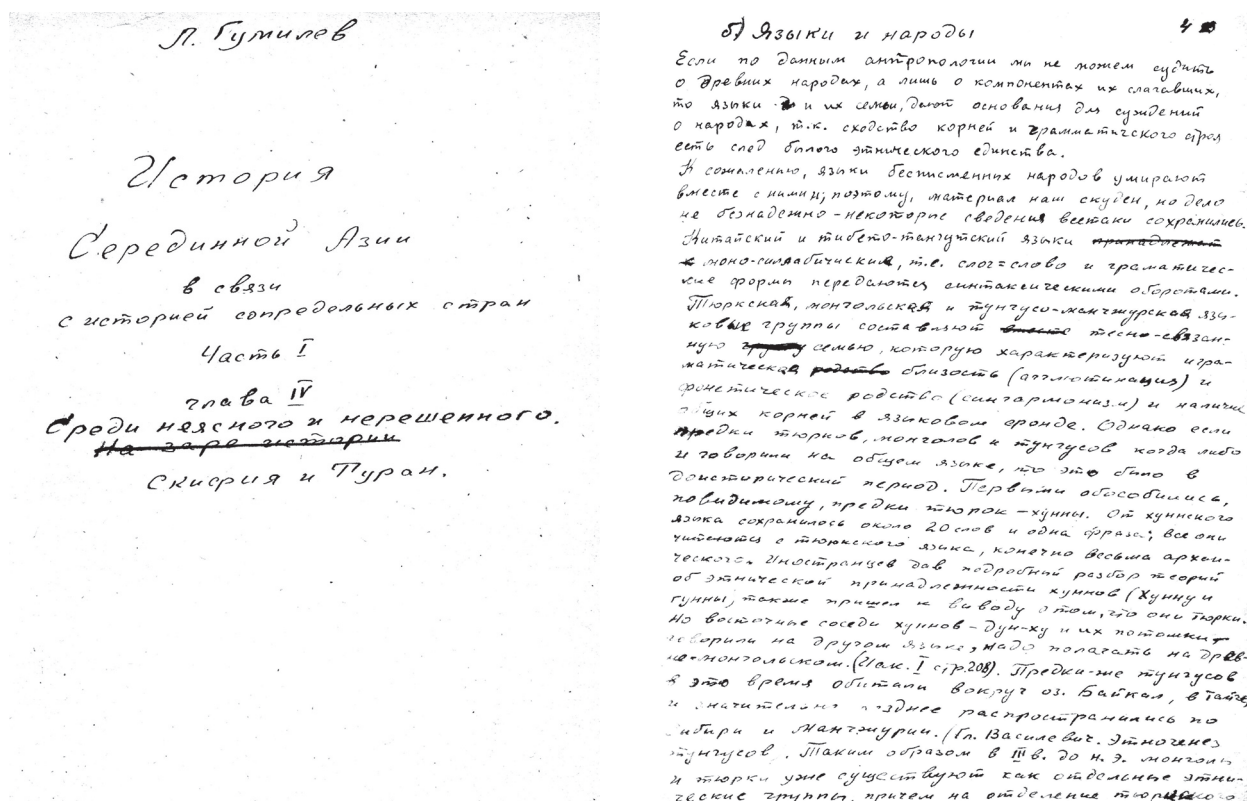 Л. Гумилев
История
Серединной Азии
в связи
с историей сопредельных стран
Часть I
глава IV
Среди неясного и нерешенного.
На заре истории
Скифия и Туран.
б) Языки и народы
4
Если по данным антропологии мы не можем судить
о древних народах, а лишь о компонентах их слагавших,
то языки и их семьи, дают основания для суждений
о народах, т.к. сходство корней и грамматического строя
есть след былого этнического единства.
К сожалению, языки бесписменных народов умирают
вместе с ними; поэтому, материал наш скуден, но дело
не безнадежно – некоторые сведения всетаки сохранились.
Китайский и тибето-тангутский языки принадлежат
к моно-силлабическим, т.е. слог=слово и граматичес-
кие формы передаются синтаксическими оборотами.
Тюркская, монгольская и тунгусо-манчжурская язы-
ковые группы составляют вместе тесно-связан-
ную группу семью, которую характеризуют и гра-
матическая родство близость (агглютинация) и
фонетическое родство (сингармонизм) и наличие
общих корней в языковом фонде. Однако если
предки тюрков, монголов и тунгусов когда либо
и говорили на общем языке, то это было в
доисторический период. Первыми обособились,
повидимому, предки тюрок – хунны. От хуннского
языка сохранилось около 20 слов и одна фраза; все они
читаются с тюркского языка, конечно весьма архаи-
ческого. Иностранцев дав подробный разбор теорий
об этнической принадлежности хуннов (Хунну и
гунны, также пришел к выводу о том, что они тюрки.
Но восточные соседи хуннов – Дун-ху и их потомки
говорили на другом языке, надо полагать на древ-
не-монгольском. (Иак. I стр. 208). Предки-же тунгусов
в это время обитали вокруг оз. Байкал, в тайге,
и позднее распространились по
Сибири и Манчжурии. (Гл. Василевич. Этногенез
тунгусов. Таким образом в III в. до н. э. монголы
и тюрки уже существуют как отдельные этни-
ческие группы, причем на отделение тюркского